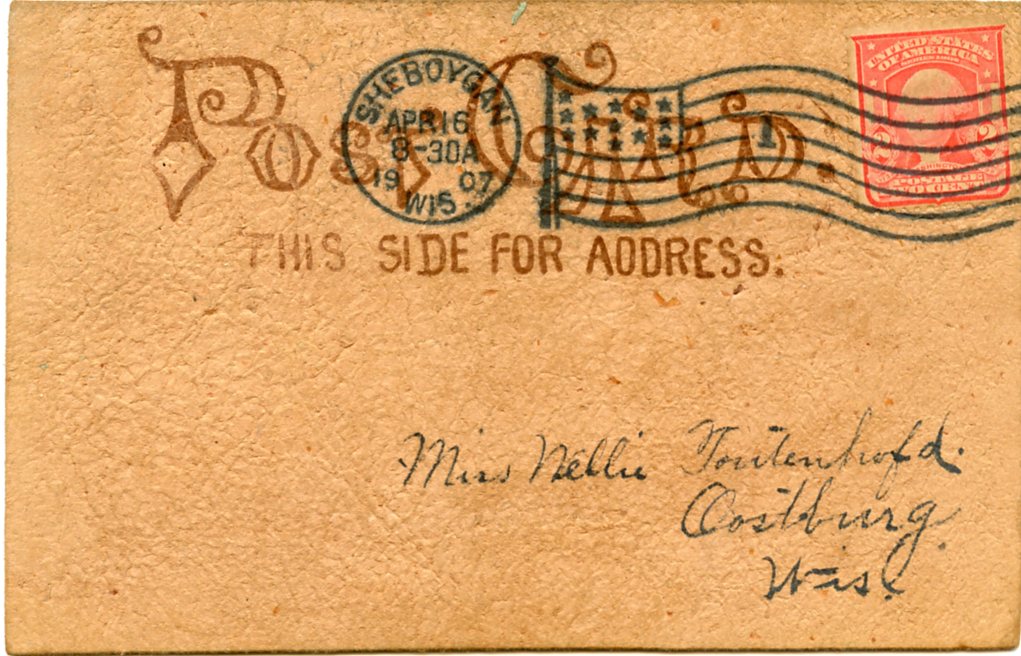 Post Card.
THIS SIDE FOR ADDRESS.
SHEBOYGAN
APR 16
8-30A
1907
WIS.
1
UNITED STATES
OF AMERICA
2 2
POSTAGE
TWO CENTS
Miss Nellie
Oostburg
Wis.